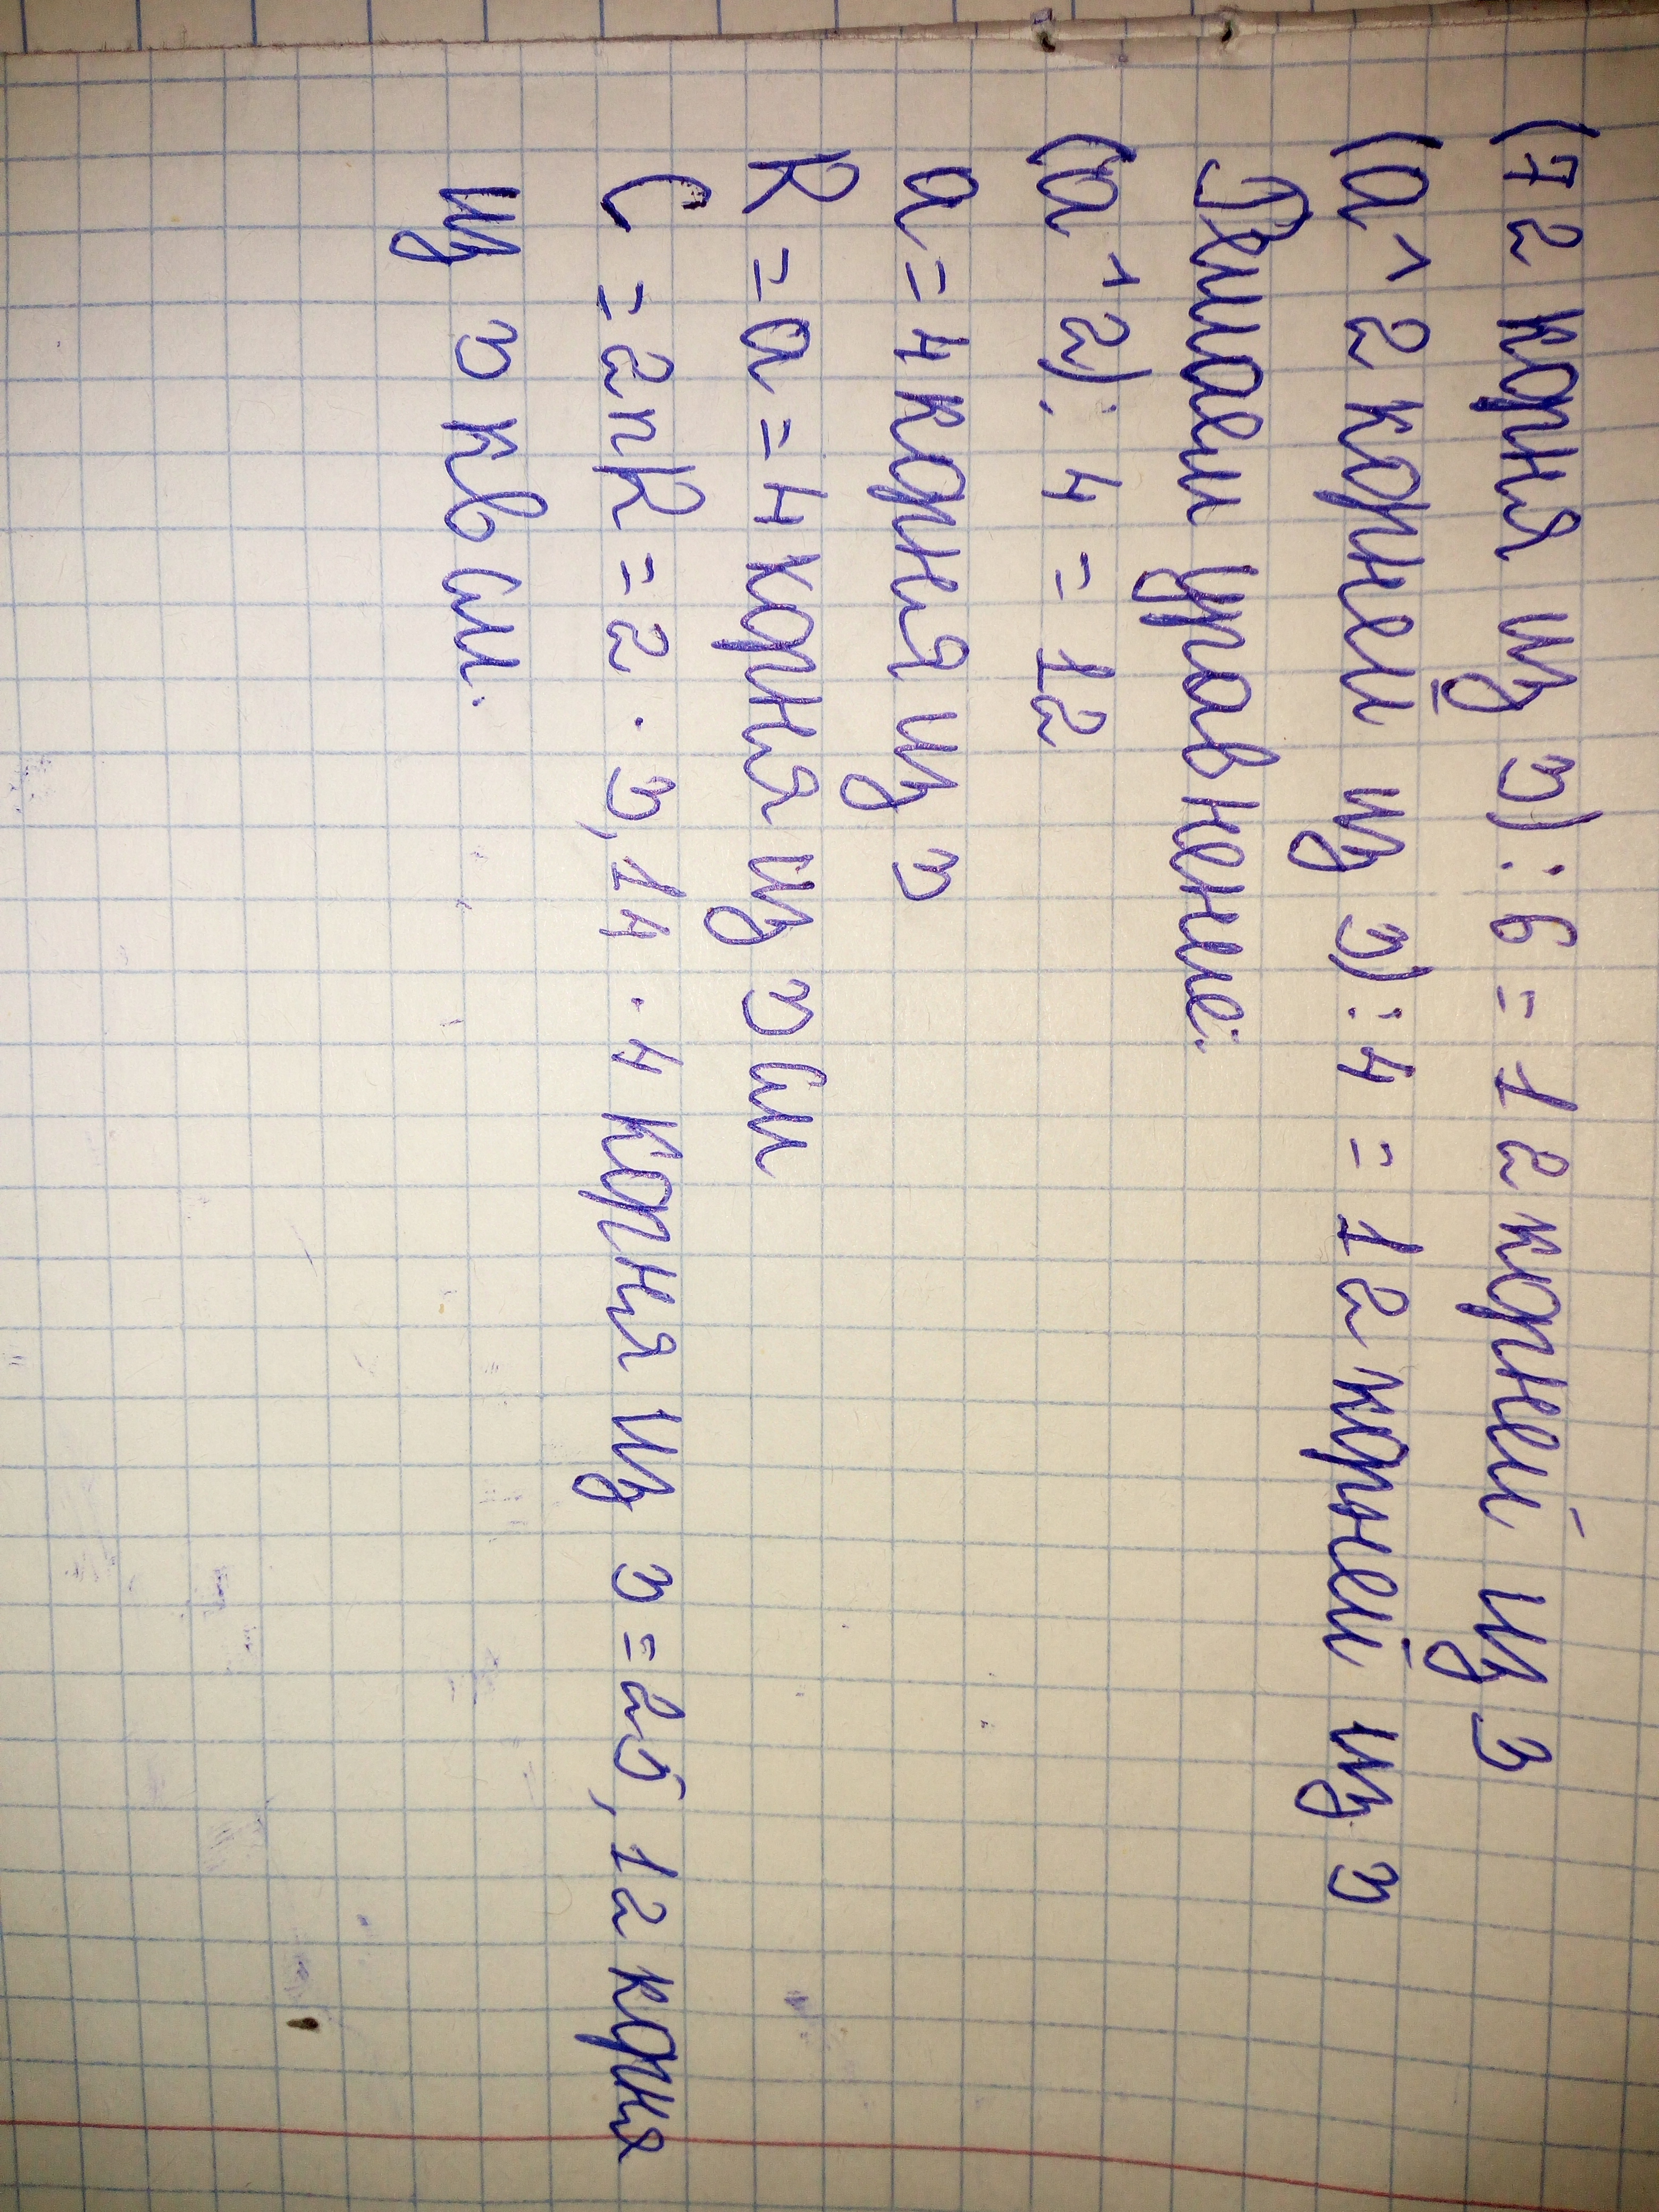 (72 корня из 3) : 6 = 12 корней из 3
(a^2 корней из 3) : 4 = 12 корней из 3
Решаем уравнение:
(a^2) : 4 = 12
a = 4 корня из 3
R = a = 4 корня из 3 см
C = 2пR = 2 · 3,14 · 4 корня из 3 = 25,12 корня
из 3 кв см.